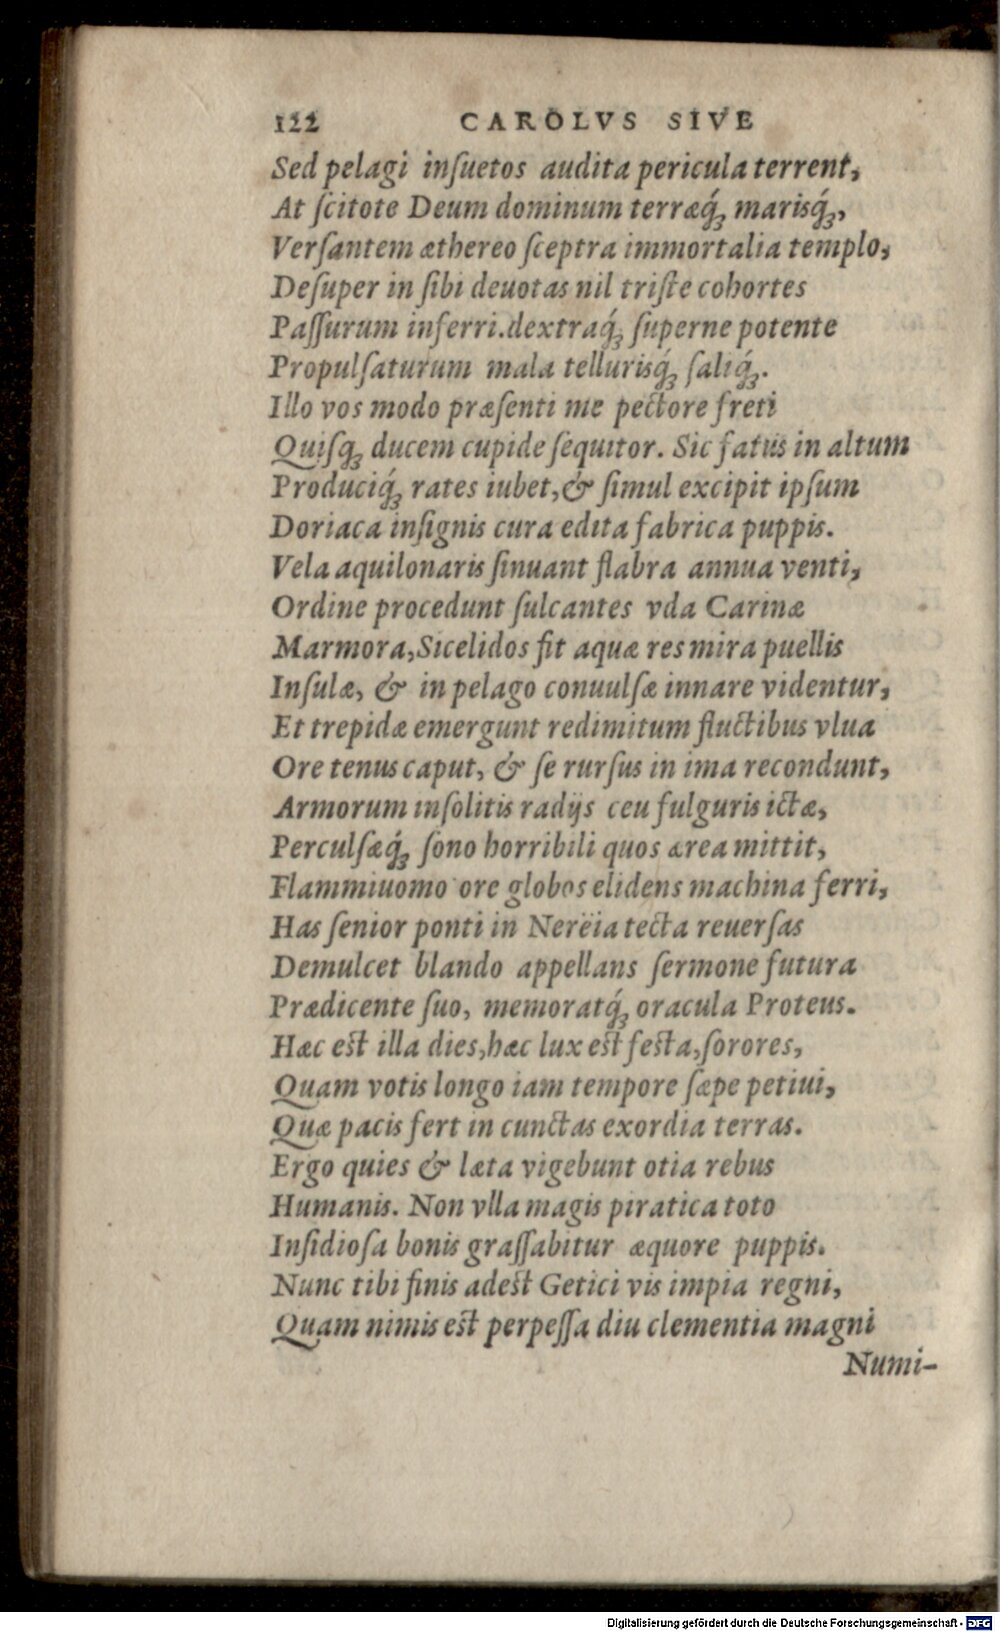 122 CAROLVS SIVE
Sed pelagi inſuetos audita pericula terrent,
At ſcitote Deum dominum terræq́ꝫ marisq́ꝫ,
Verſantem æthereo ſceptra immortalia templo,
Deſuper in ſibi deuotas nil triſte cohortes
Paſſurum inferri.dextraq́ꝫ ſuperne potente
Propulſaturum mala tellurisq́ꝫ ſaliq́ꝫ.
Illo vos modo præſenti me pectore freti
Quiſqꝫ ducem cupide ſequitor. Sic fatus in altum
Produciq́ꝫ rates iubet,& ſimul excipit ipſum
Doriaca inſignis cura edita fabrica puppis.
Vela aquilonaris ſinuant flabra annua venti,
Ordine procedunt ſulcantes vda Carinæ
Marmora,Sicelidos fit aquæ res mira puellis
Inſulæ, & in pelago conuulſæ innare videntur,
Et trepidæ emergunt redimitum fluctibus vlua
Ore tenus caput, & ſe rurſus in ima recondunt,
Armorum inſolitis radijs ceu fulguris ictæ,
Perculſæq́ꝫ ſono horribili quos ærea mittit,
Flammiuomo ore globos elidens machina ferri,
Has ſenior ponti in Nerëia tecta reuerſas
Demulcet blando appellans ſermone futura
Prædicente ſuo, memoratq́ꝫ oracula Proteus.
Hæc eſt illa dies,hæc lux eſt feſta,ſorores,
Quam votis longo iam tempore ſæpe petiui,
Quæ pacis fert in cunctas exordia terras.
Ergo quies & læta vigebunt otia rebus
Humanis. Non vlla magis piratica toto
Inſidioſa bonis graſſabitur æquore puppis.
Nunc tibi finis adeſt Getici vis impia regni,
Quam nimis eſt perpeſſa diu clementia magni
Numi-
Digitalisierung gefördert durch die Deutsche Forschungsgemeinschaft - DFG